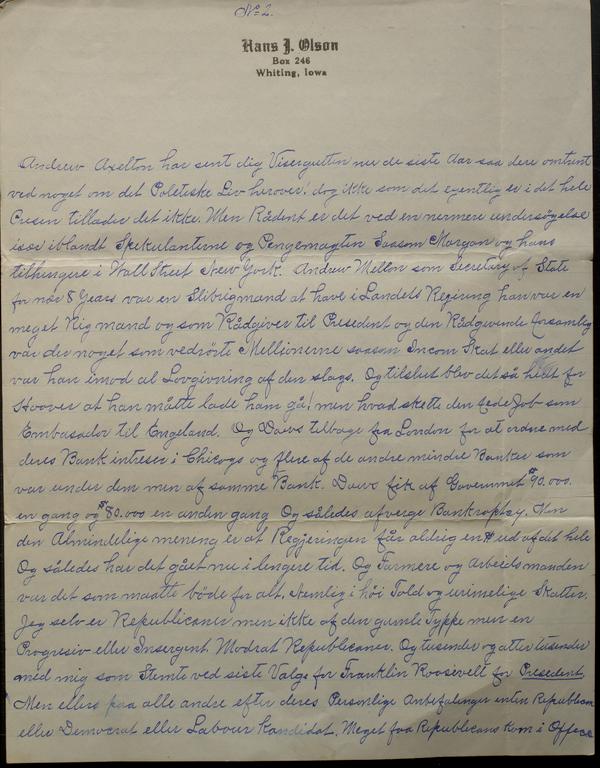 No 2.
Hans J. Olson
Box 246
Whiting, Iowa
Andrew Axelton har sent dig Visergutten nu de siste Aar saa dere omtrent
ved noget om det Poletiske Lev herover! dog ikke som det egentlig er i det hele
Cusin tillader det ikke. Men Rådent er det ved en nermere undersögelse
isse iblandt Spekulanterne og Pengemagten Sassom Morgan og hans
tilhengere i Wall Street New York. Andrew Mellon som Secretary of State
for nör 8 Years var en Slibrigmand at have i Landets Regirung han var en
meget Rig mand og som Rådgiver til Presedent og den Rådgivende forsamling
var der noget som vedrörte Mellionerne saasom Incom Skat eller andet
var han imod al Lovgivning af den slags. Og tilslut blev det så hedt for
Hoover at han måtte lade ham gå! men hvad skette den fede Job som
Embasador til Engeland. Og Daws tilbage fra London for at ordne med
deres Bank intreser i Chicago og flere af de andre mindre Banker som
var under dem men af samme Bank. Daws fik af Governmet $90.000.
en gang og $80.000 en anden gang Og således afverge Bankroptsy. Men
den Almindelige mening er at Regjeringen får aldrig en ¢ ud af det hele
Og således har det gået nu i lengere tid. Og Farmere og Arbeidsmanden
var det som maatte böde for alt. Nemlig i höi Told og urimelige Skatter.
Jeg selv er Republicaner men ikke af den gamle Typpe men en
Progresiv eller Insergent Modrat Republicaner. Og tusender og atter tusender
med mig som Stemte ved siste Valg for Franklin Roosevelt for Presedent,
Men ellers paa alle andre efter deres Personlige Anbefalinger enten Republican
eller Democrat eller Labour Kandidat. Meget faa Republicans kom i Office